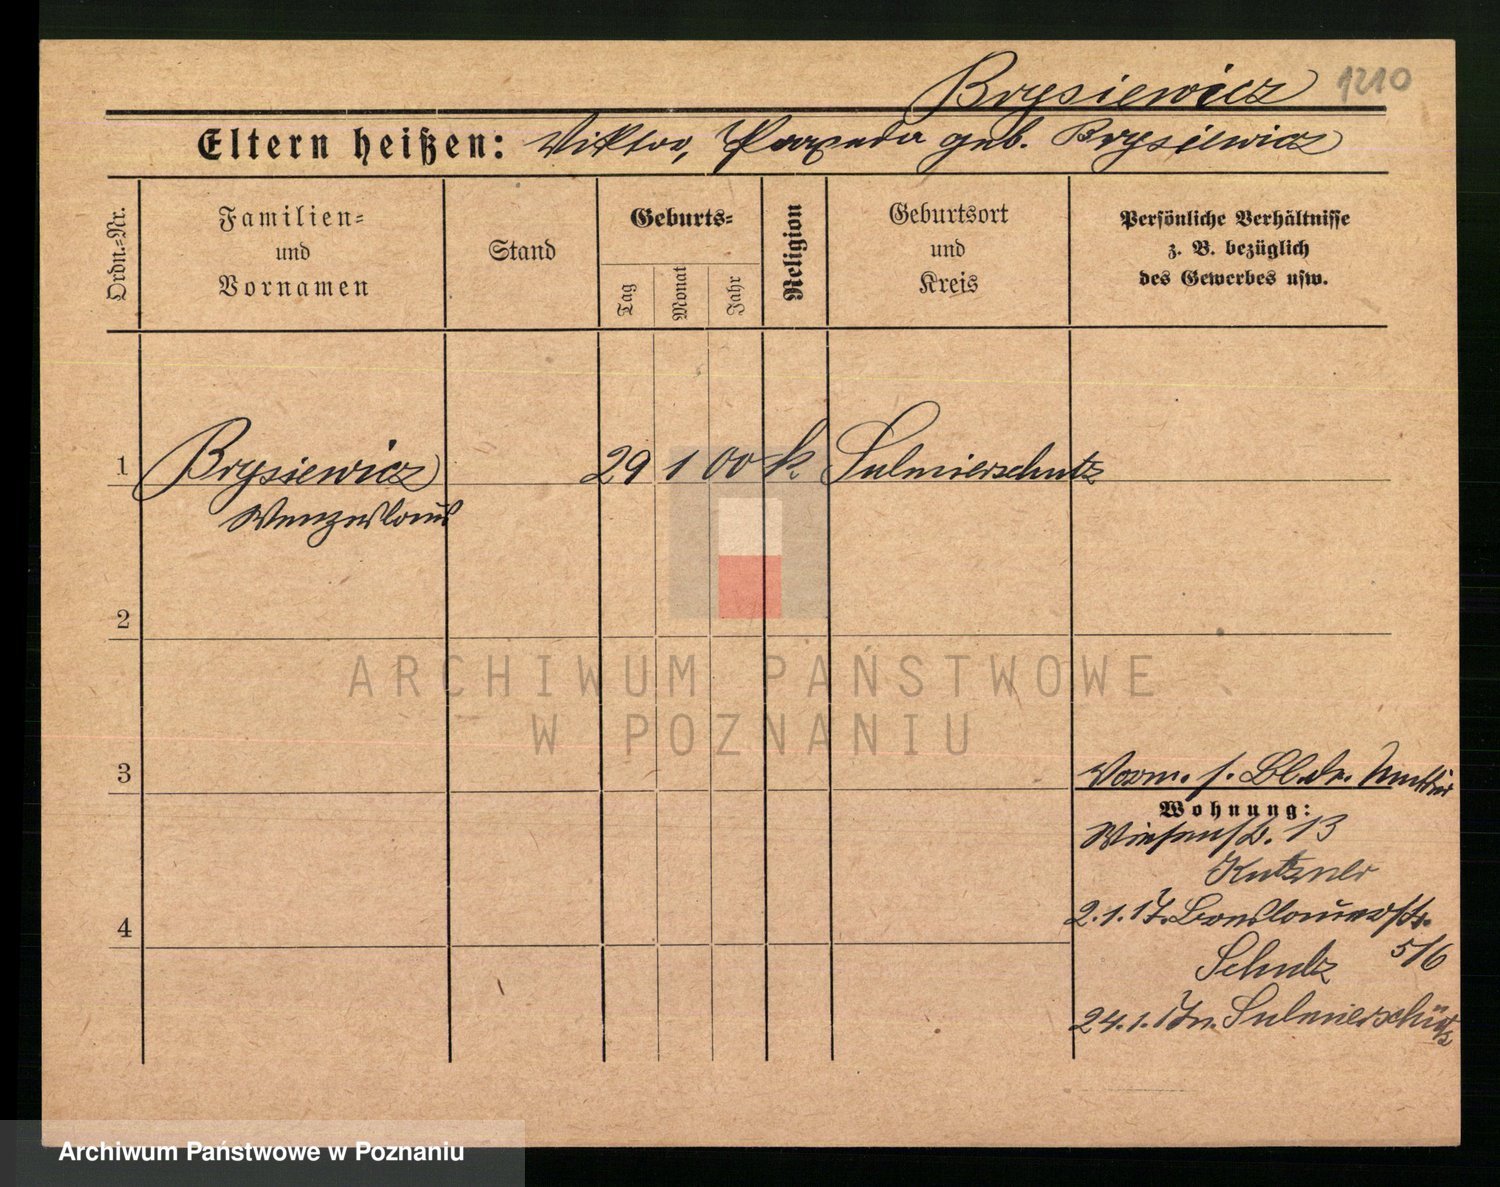 Brysiewicz 1210
Eltern heißen: Viktor, geb. Brysiewicz
Ordn.-Nr.
Familien-
und
Vornamen
Stand
Geburts-
Tag
Monat
Jahr
Religion
Geburtsort
und
Kreis
Persönliche Verhältnisse
z. B. bezüglich
des Gewerbes usw.
1 Brysiewicz 29 1 00 k Sulmierschutz
Wenzeslaus
2
ARCHIWUM PAŃSTWOWE
W POZNANIU
3
Vorm. s. Bl. der Mutter
Wohnung:
Wiesenstr. 13
Kutzner
2.1.17. Breslauerstr.
5/6
Schulz
4
24.1.17 n. Sulmierschütz
Archiwum Państwowe w Poznaniu